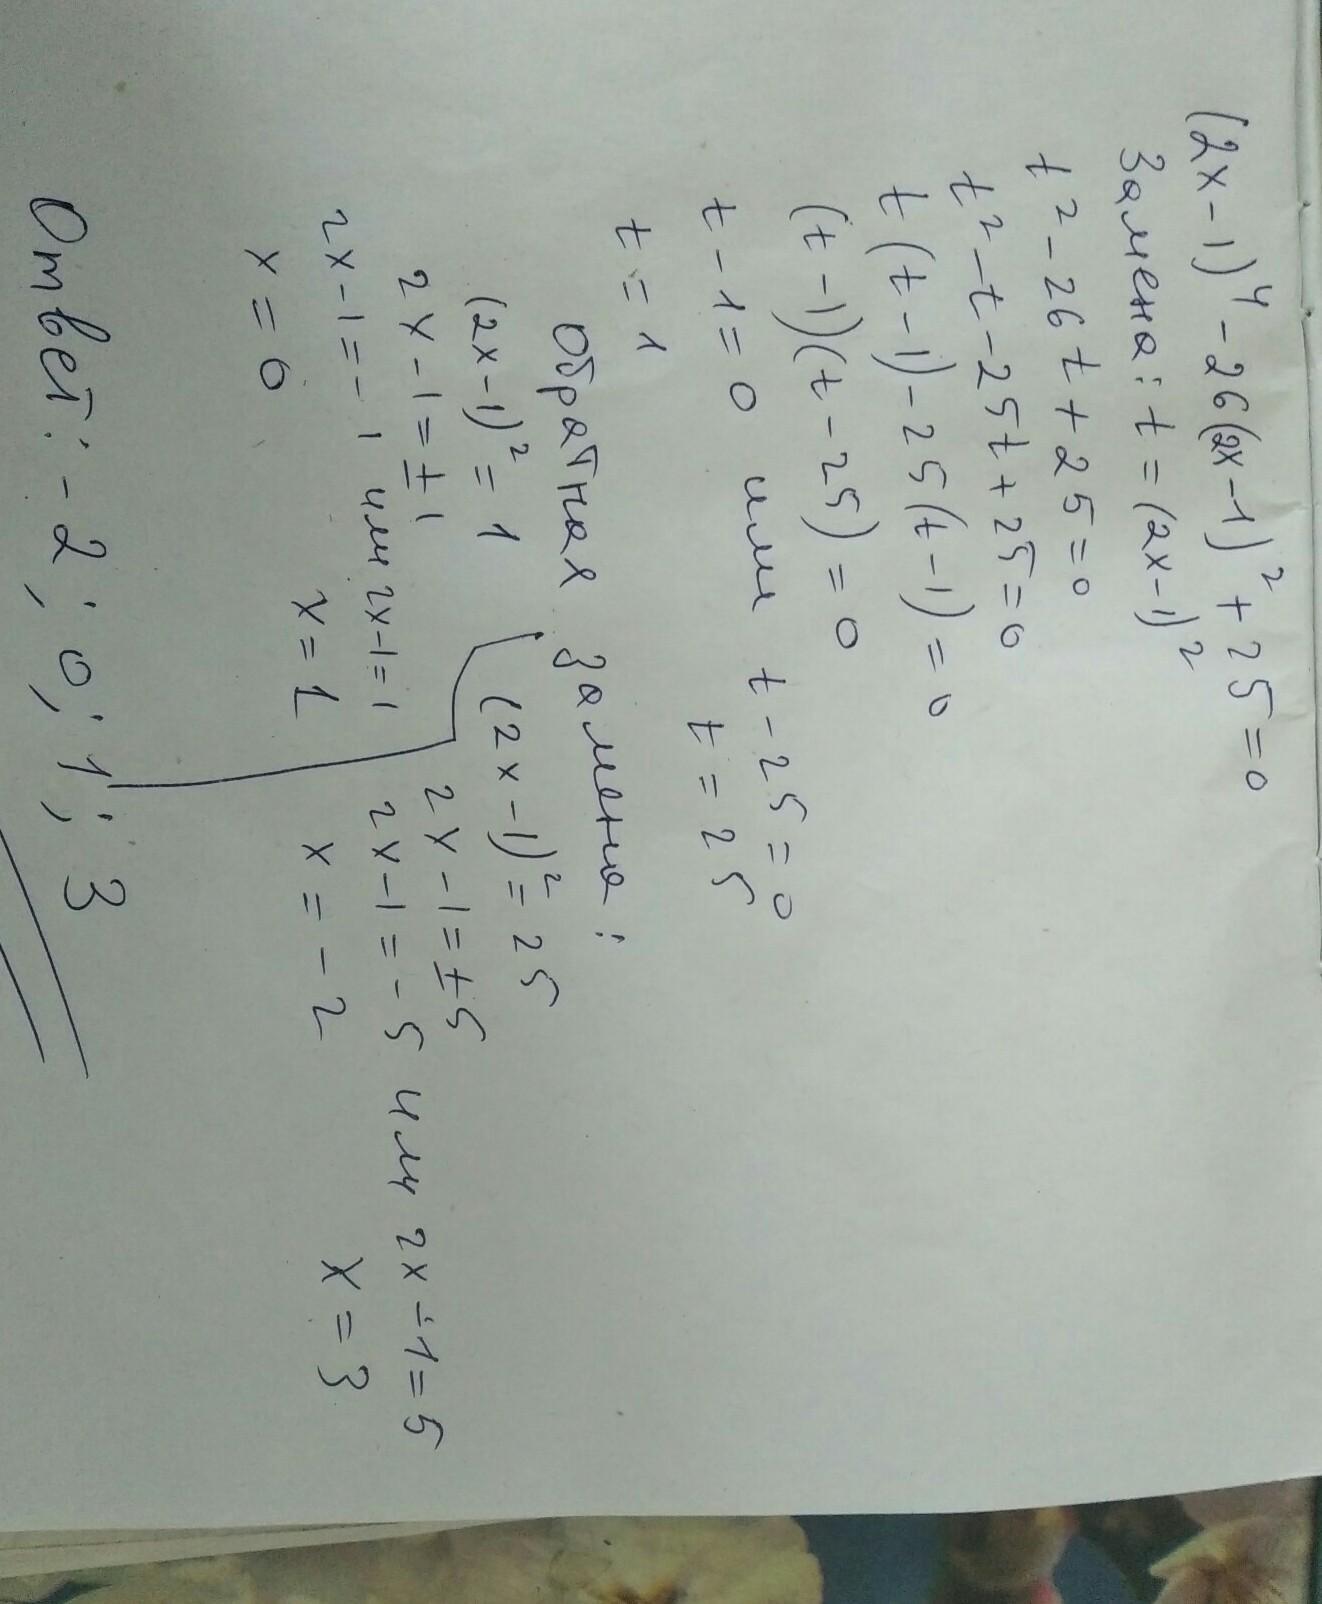 (2x-1)⁴ - 26(2x-1)² + 25 = 0
Замена: t = (2x-1)²
t² - 26t + 25 = 0
t² - t - 25t + 25 = 0
t(t-1) - 25(t-1) = 0
(t-1)(t-25) = 0
t-1=0 или t-25=0
t = 1 t = 25
Обратная замена:
(2x-1)² = 1 (2x-1)² = 25
2x-1 = ±1 2x-1 = ±5
2x-1=-1 или 2x-1=1 2x-1=-5 или 2x-1=5
x = 0 x = 1 x = -2 x = 3
Ответ: -2; 0; 1; 3